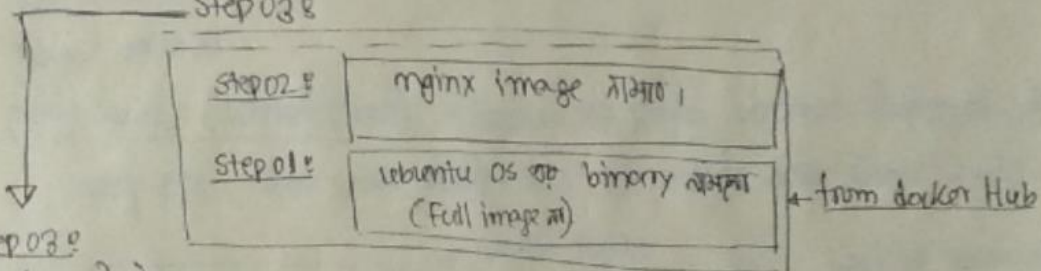 Step 03:
Step 02: nginx image নামাও।
Step 01: ubuntu OS এর binary নামানো
(Full image না)
from docker Hub
ep 03: